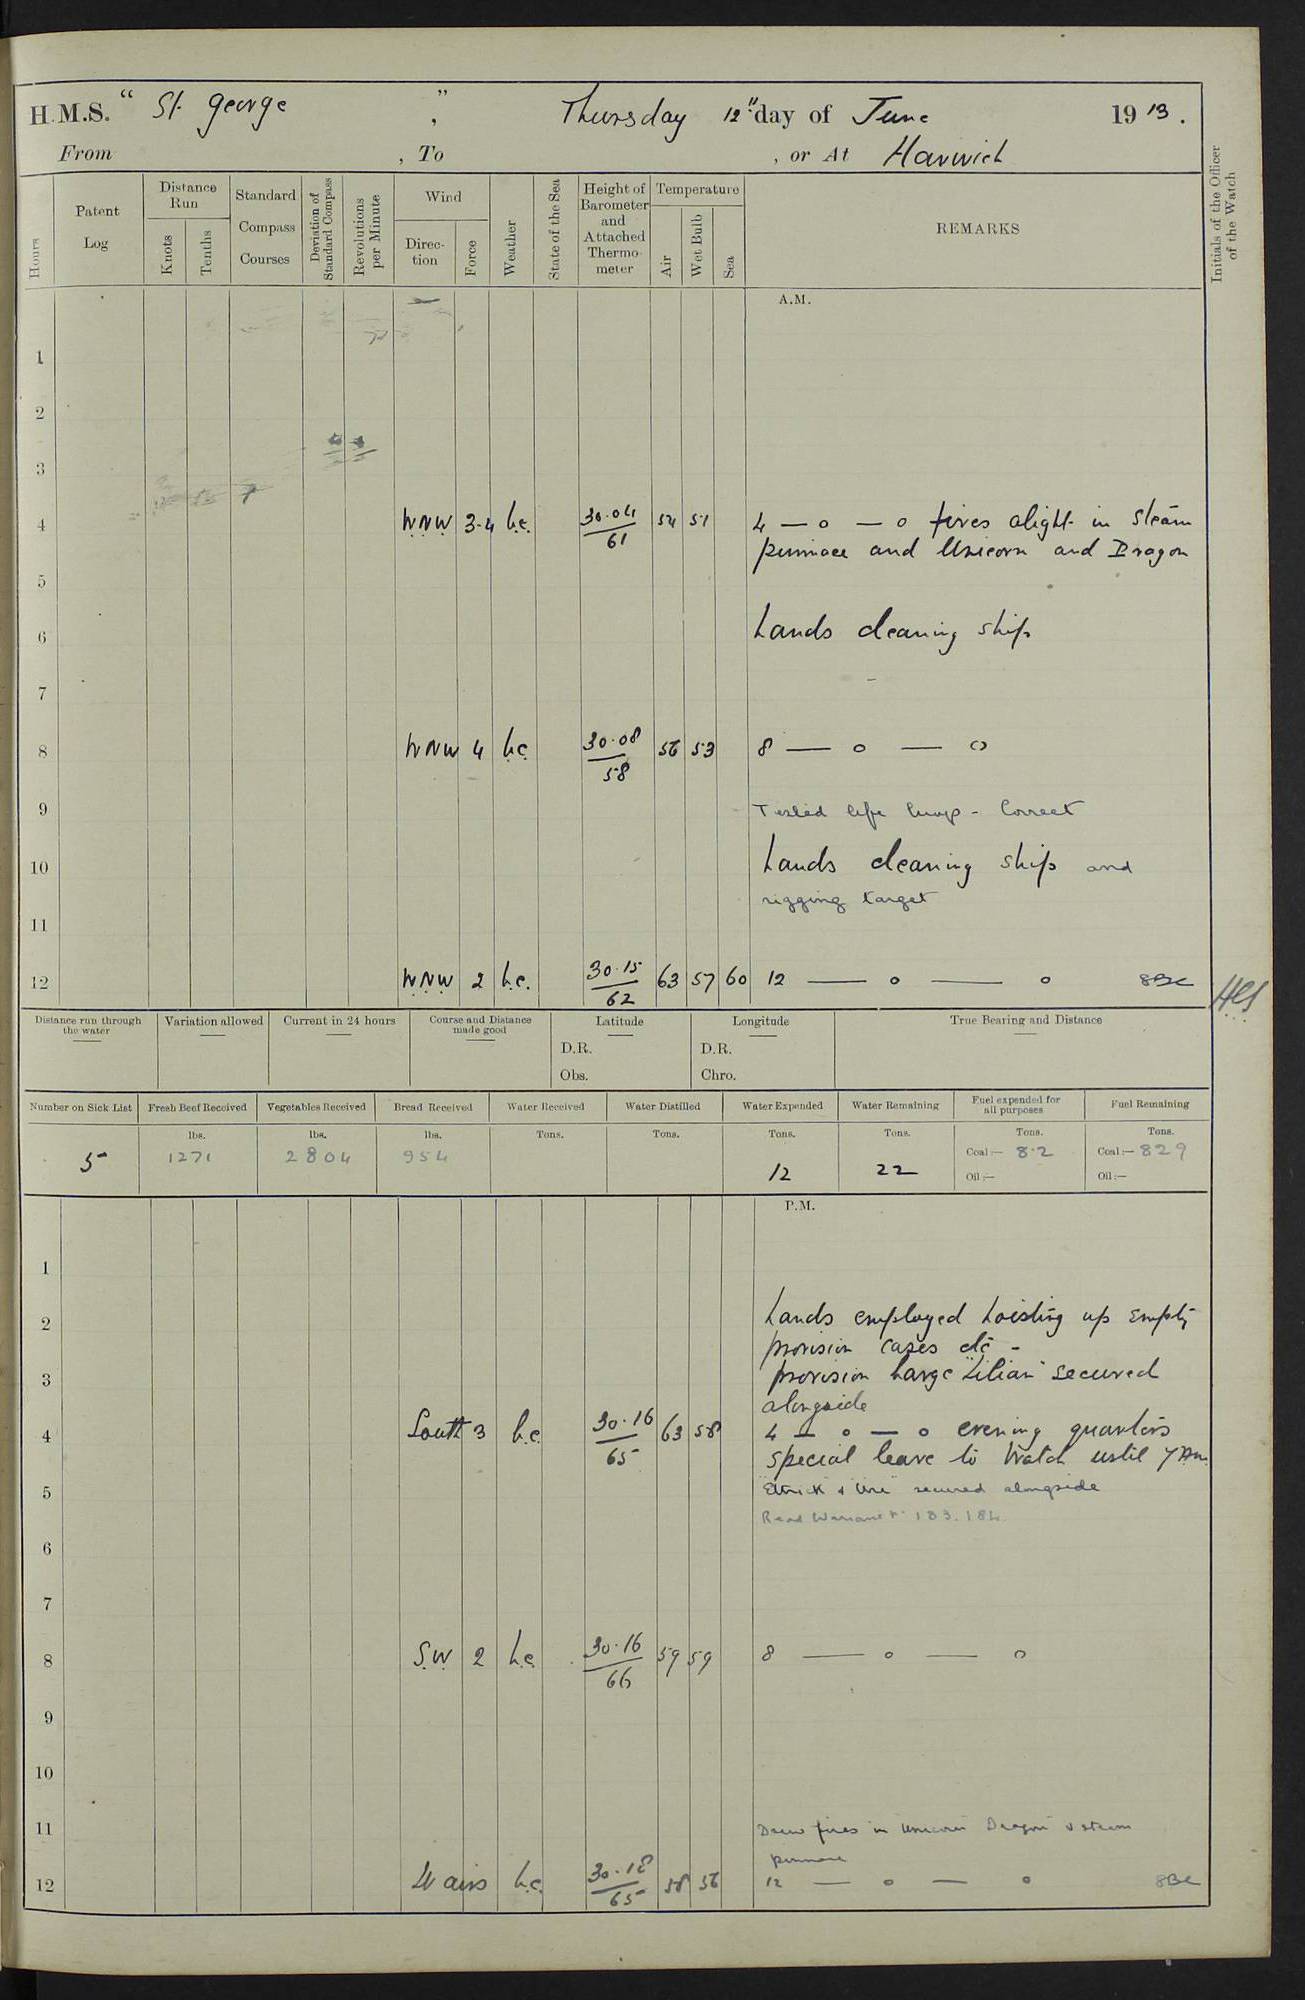 H.M.S. “ St. George ” , Thursday 12th day of June 1913.
From , To , or At Harwich
Hours
Patent Log
Distance Run
Knots
Tenths
Standard Compass Courses
Deviation of Standard Compass
Revolutions per Minute
Wind
Direction
Force
Weather
State of the Sea
Height of Barometer and Attached Thermometer
Temperature
Air
Wet Bulb
Sea
REMARKS
Initials of the Officer of the Watch
A.M.
1
2
3
4 WNW 3-4 b.c. 30.04/61 54 51 4 — o — o fires alight in steam
pinnace and Unicorn and Dragon
5
6 Hands cleaning ship
7
8 WNW 4 b.c. 30.08/58 56 53 8 — o — o
9 Tested life buoys - Correct
10 Hands cleaning ship and
rigging target
11
12 WNW 2 b.c. 30.15/62 63 57 60 12 — o — o 8BC
Distance run through the water
Variation allowed
Current in 24 hours
Course and Distance made good
Latitude
D.R.
Obs.
Longitude
D.R.
Chro.
True Bearing and Distance
Number on Sick List
Fresh Beef Received
Vegetables Received
Bread Received
Water Received
Water Distilled
Water Expended
Water Remaining
Fuel expended for all purposes
Fuel Remaining
5
lbs. 1271
lbs. 2804
lbs. 954
Tons.
Tons.
Tons. 12
Tons. 22
Tons. Coal:— 8.2
Oil:—
Tons. Coal:— 829
Oil:—
P.M.
1
2 Hands employed hoisting up empty
provision cases etc -
3 provision barge "Lilian" secured
alongside
4 South 3 b.c. 30.16/65 63 58 4 — o — o evening quarters
special leave to Watch until 7 Am.
5 "Ettrick & Ure" secured alongside
Read Warrant 183.184
6
7
8 S.W 2 b.c. 30.16/66 59 59 8 — o — o
9
10
11 Drew fires in Unicorn Dragon & steam
pinnace
12 Lt airs b.c. 30.18/65 58 56 12 — o — o 8BC